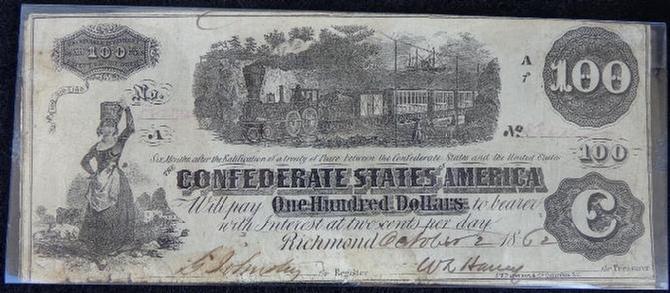 100
A
100
No.
A
No
Six Months after the Ratification of a treaty of Peace between the Confederate States and the United States
100
THE CONFEDERATE STATES OF AMERICA
Will pay One Hundred Dollars to bearer
with Interest at two cents per day
Richmond October 2 1862
for Register
for Treasurer
C